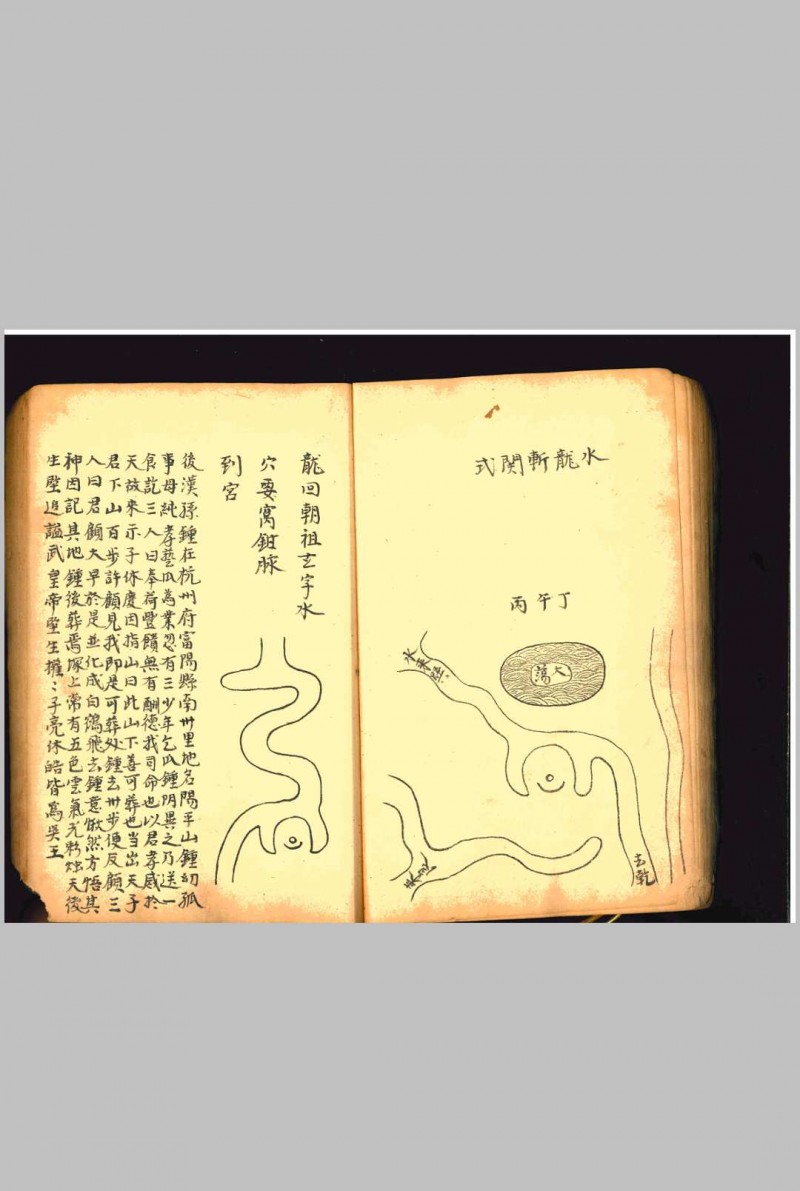 水龍斬関式
丁午丙
大蕩
水来
去乾
龍回朝祖玄字水
穴要窩鉗脉
到宮
後漢孫鍾在杭州府富陽縣南卅里地名陽平山鍾幼孤
事母純孝藝瓜為業忽有三少年乞瓜鍾閉異之乃送一
食訖三人曰奉荷豐饋無有酬德我司命也以君孝感於
天故来示子休慶因指山曰此山下善可葬也当出天子
君下山百步許顧見我即是可葬处鍾去卅步便反顧三
人曰君顧大早於是並化成白鶴飛去鍾意愀然方悟其
神因記其地鍾後葬焉塚上常有五色雲氣光彩燭天後
生堅追謚武皇帝堅生權〻子亮休皓皆為吳王